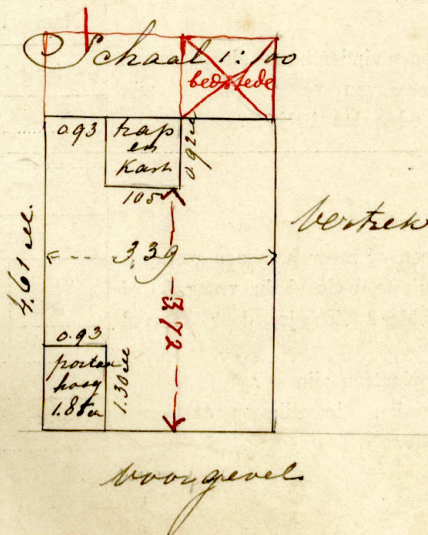 Schaal 1:100
bedstede
0.93
trap
en
Kast
0.92 M
105
Vertrek
4.61 M.
3.39
3.72
0.93
portaal
hoog
1.85 M
1.30 M
voorgevel